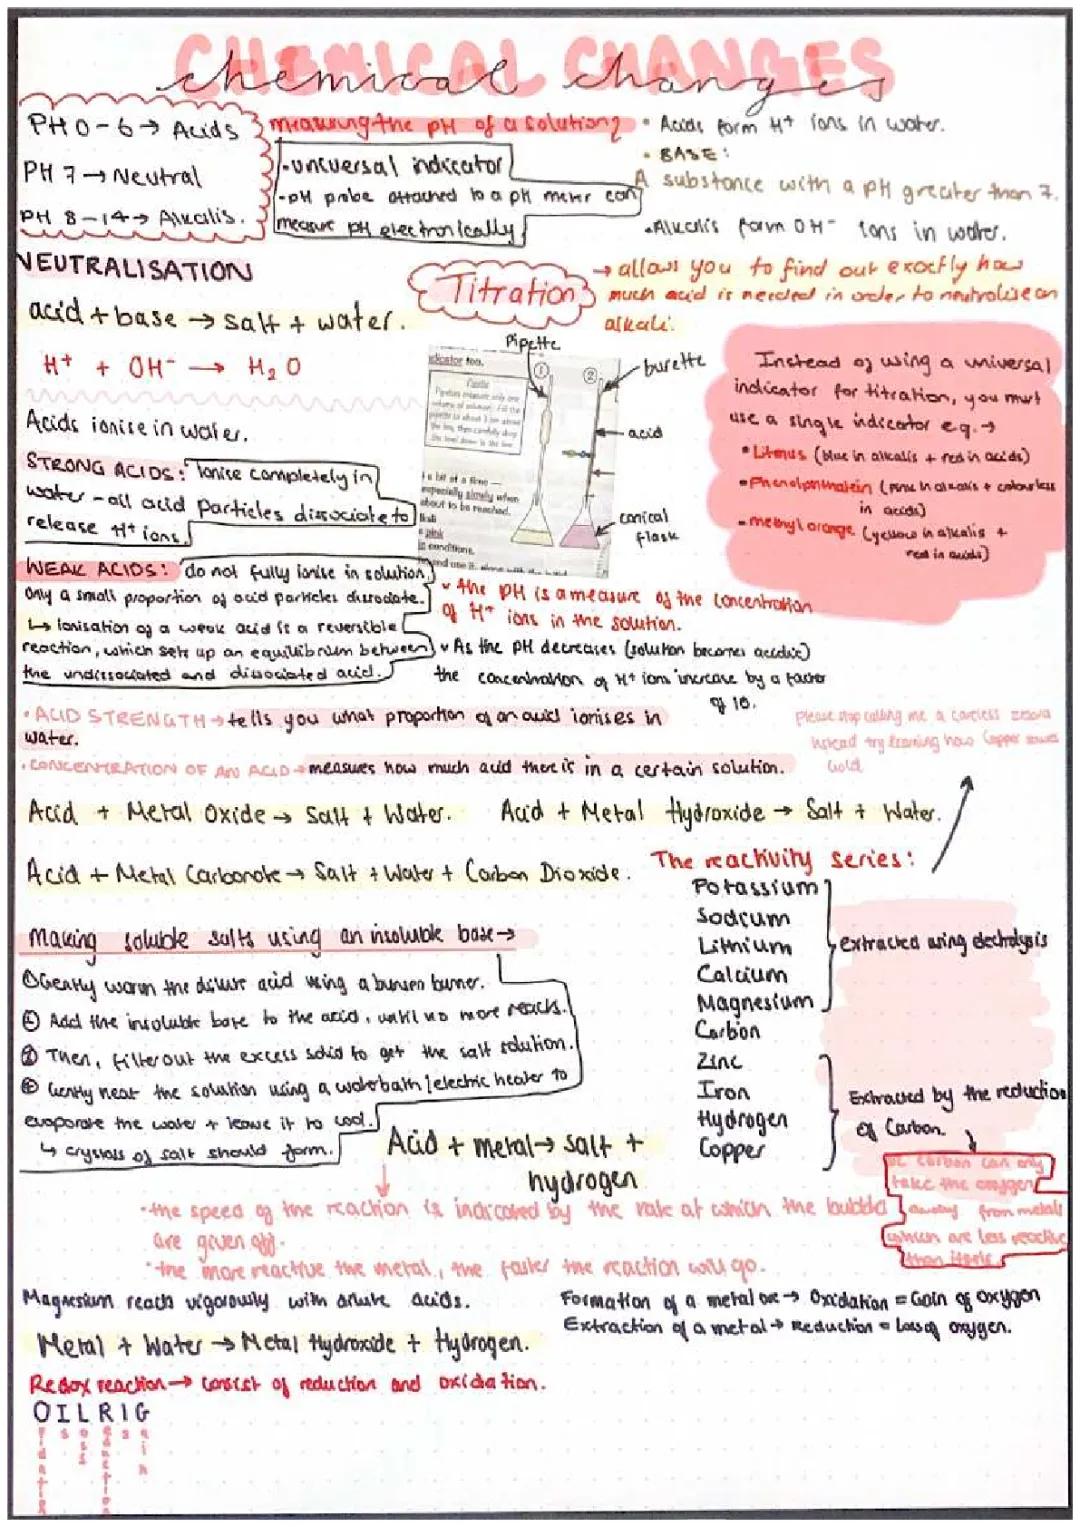 CHEMICAL CHANGES
chemical changes
PH 0-6 → Acids
PH 7 → Neutral
PH 8-14 → Alkalis.
measuring the pH of a solution?
-universal indicator
-pH probe attached to a pH meter can
measure pH electronically
• Acids form H+ ions in water.
• BASE:
A substance with a pH greater than 7.
•Alkalis form OH- ions in water.
NEUTRALISATION
acid + base → salt + water.
H+ + OH- → H2O
Titration
→ allows you to find out exactly how
much acid is needed in order to neutralise an
alkali.
Pipette
burette
acid
conical
flask
①
②
Instead of using a universal
indicator for titration, you must
use a single indicator e.g. →
• Litmus (blue in alkalis + red in acids)
•Phenolphthalein (pink in alkalis + colourless
in acids)
-methyl orange (yellow in alkalis +
red in acids)
Acids ionise in water.
STRONG ACIDS: Ionise completely in
water - all acid particles dissociate to
release H+ ions.
WEAK ACIDS: do not fully ionise in solution
Only a small proportion of acid particles dissociate.
↳ Ionisation of a weak acid is a reversible
reaction, which sets up an equilibrium between
the undissociated and dissociated acid.
the PH is a measure of the concentration
of H+ ions in the solution.
As the pH decreases (solution becomes acidic)
the concentration of H+ ions increase by a factor
of 10.
• ACID STRENGTH → tells you what proportion of an acid ionises in
water.
• CONCENTRATION OF AN ACID → measures how much acid there is in a certain solution.
Please stop calling me a careless zebra
instead try learning how Copper saves
Gold
Acid + Metal Oxide → Salt + Water.
Acid + Metal Hydroxide → Salt + Water.
Acid + Metal Carbonate → Salt + Water + Carbon Dioxide.
The reactivity series:
Potassium
Sodium
Lithium
Calcium
Magnesium
Carbon
Zinc
Iron
Hydrogen
Copper
extracted using electrolysis
Extracted by the reduction
of Carbon.
carbon can only
take the oxygen
away from metals
which are less reactive
than itself
Making soluble salts using an insoluble base →
①Gently warm the dilute acid using a bunsen burner.
Add the insoluble base to the acid, until no more reacts.
Then, filter out the excess solid to get the salt solution.
Gently heat the solution using a waterbath/electric heater to
evaporate the water + leave it to cool.
↳ crystals of salt should form.
Acid + metal → salt +
hydrogen
•the speed of the reaction is indicated by the rate at which the bubbles
are given off.
•the more reactive the metal, the faster the reaction will go.
Magnesium reacts vigorously with dilute acids.
Metal + Water → Metal Hydroxide + Hydrogen.
Formation of a metal ore → Oxidation = Gain of oxygen
Extraction of a metal → Reduction = Loss of oxygen.
Redox reaction → consist of reduction and oxidation.
OILRIG